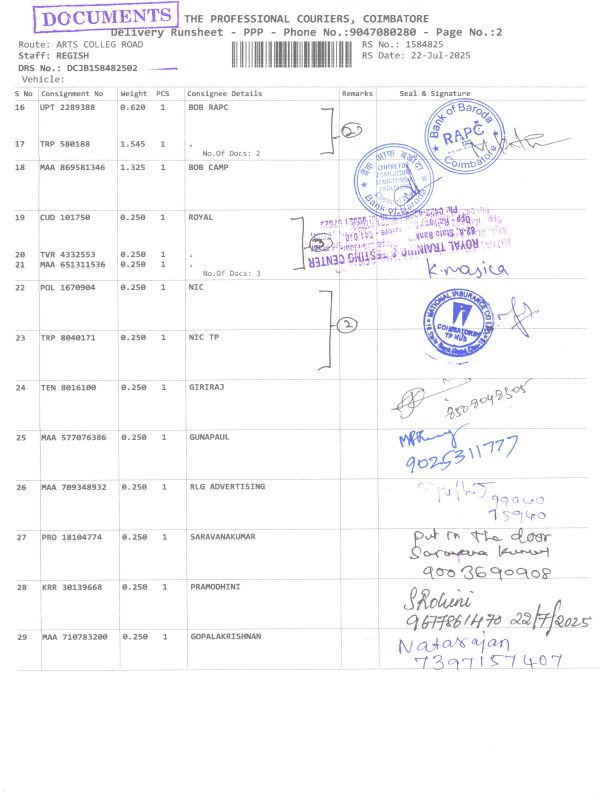 DOCUMENTS
THE PROFESSIONAL COURIERS, COIMBATORE
Delivery Runsheet - PPP - Phone No.:9047080280 - Page No.:2
Route: ARTS COLLEG ROAD
RS No.: 1584825
Staff: REGISH
RS Date: 22-Jul-2025
DRS No.: DCJB158482502
Vehicle:
S No Consignment No Weight PCS Consignee Details Remarks Seal & Signature
16 UPT 2289388 0.620 1 BOB RAPC
2
Bank of Baroda
RAPC
Coimbatore
17 TRP 580188 1.545 1 .
No.Of Docs: 2
18 MAA 869581346 1.325 1 BOB CAMP
बैंक ऑफ़ बड़ौदा
CENTRE FOR
AGRICULTURE
MARKETING &
PROCESSING
Bank of Baroda
19 CUD 101750 0.250 1 ROYAL
3
ROYAL TRAINING & TESTING CENTER
20 TVR 4332553 0.250 1 .
21 MAA 651311536 0.250 1 .
No.Of Docs: 3
K.masica
22 POL 1670904 0.250 1 NIC
2
NATIONAL INSURANCE CO LTD
COIMBATORE
TP HUB
23 TRP 8040171 0.250 1 NIC TP
24 TEN 8016100 0.250 1 GIRIRAJ
8508048505
25 MAA 577076386 0.250 1 GUNAPAUL
9025311777
26 MAA 709348932 0.250 1 RLG ADVERTISING
99940
75940
27 PRO 18104774 0.250 1 SARAVANAKUMAR
Put in the door
Saravana Kumar
9003690908
28 KRR 30139668 0.250 1 PRAMODHINI
S.Rohini
9677861470 22/7/2025
29 MAA 710783200 0.250 1 GOPALAKRISHNAN
Natarajan
7397157407